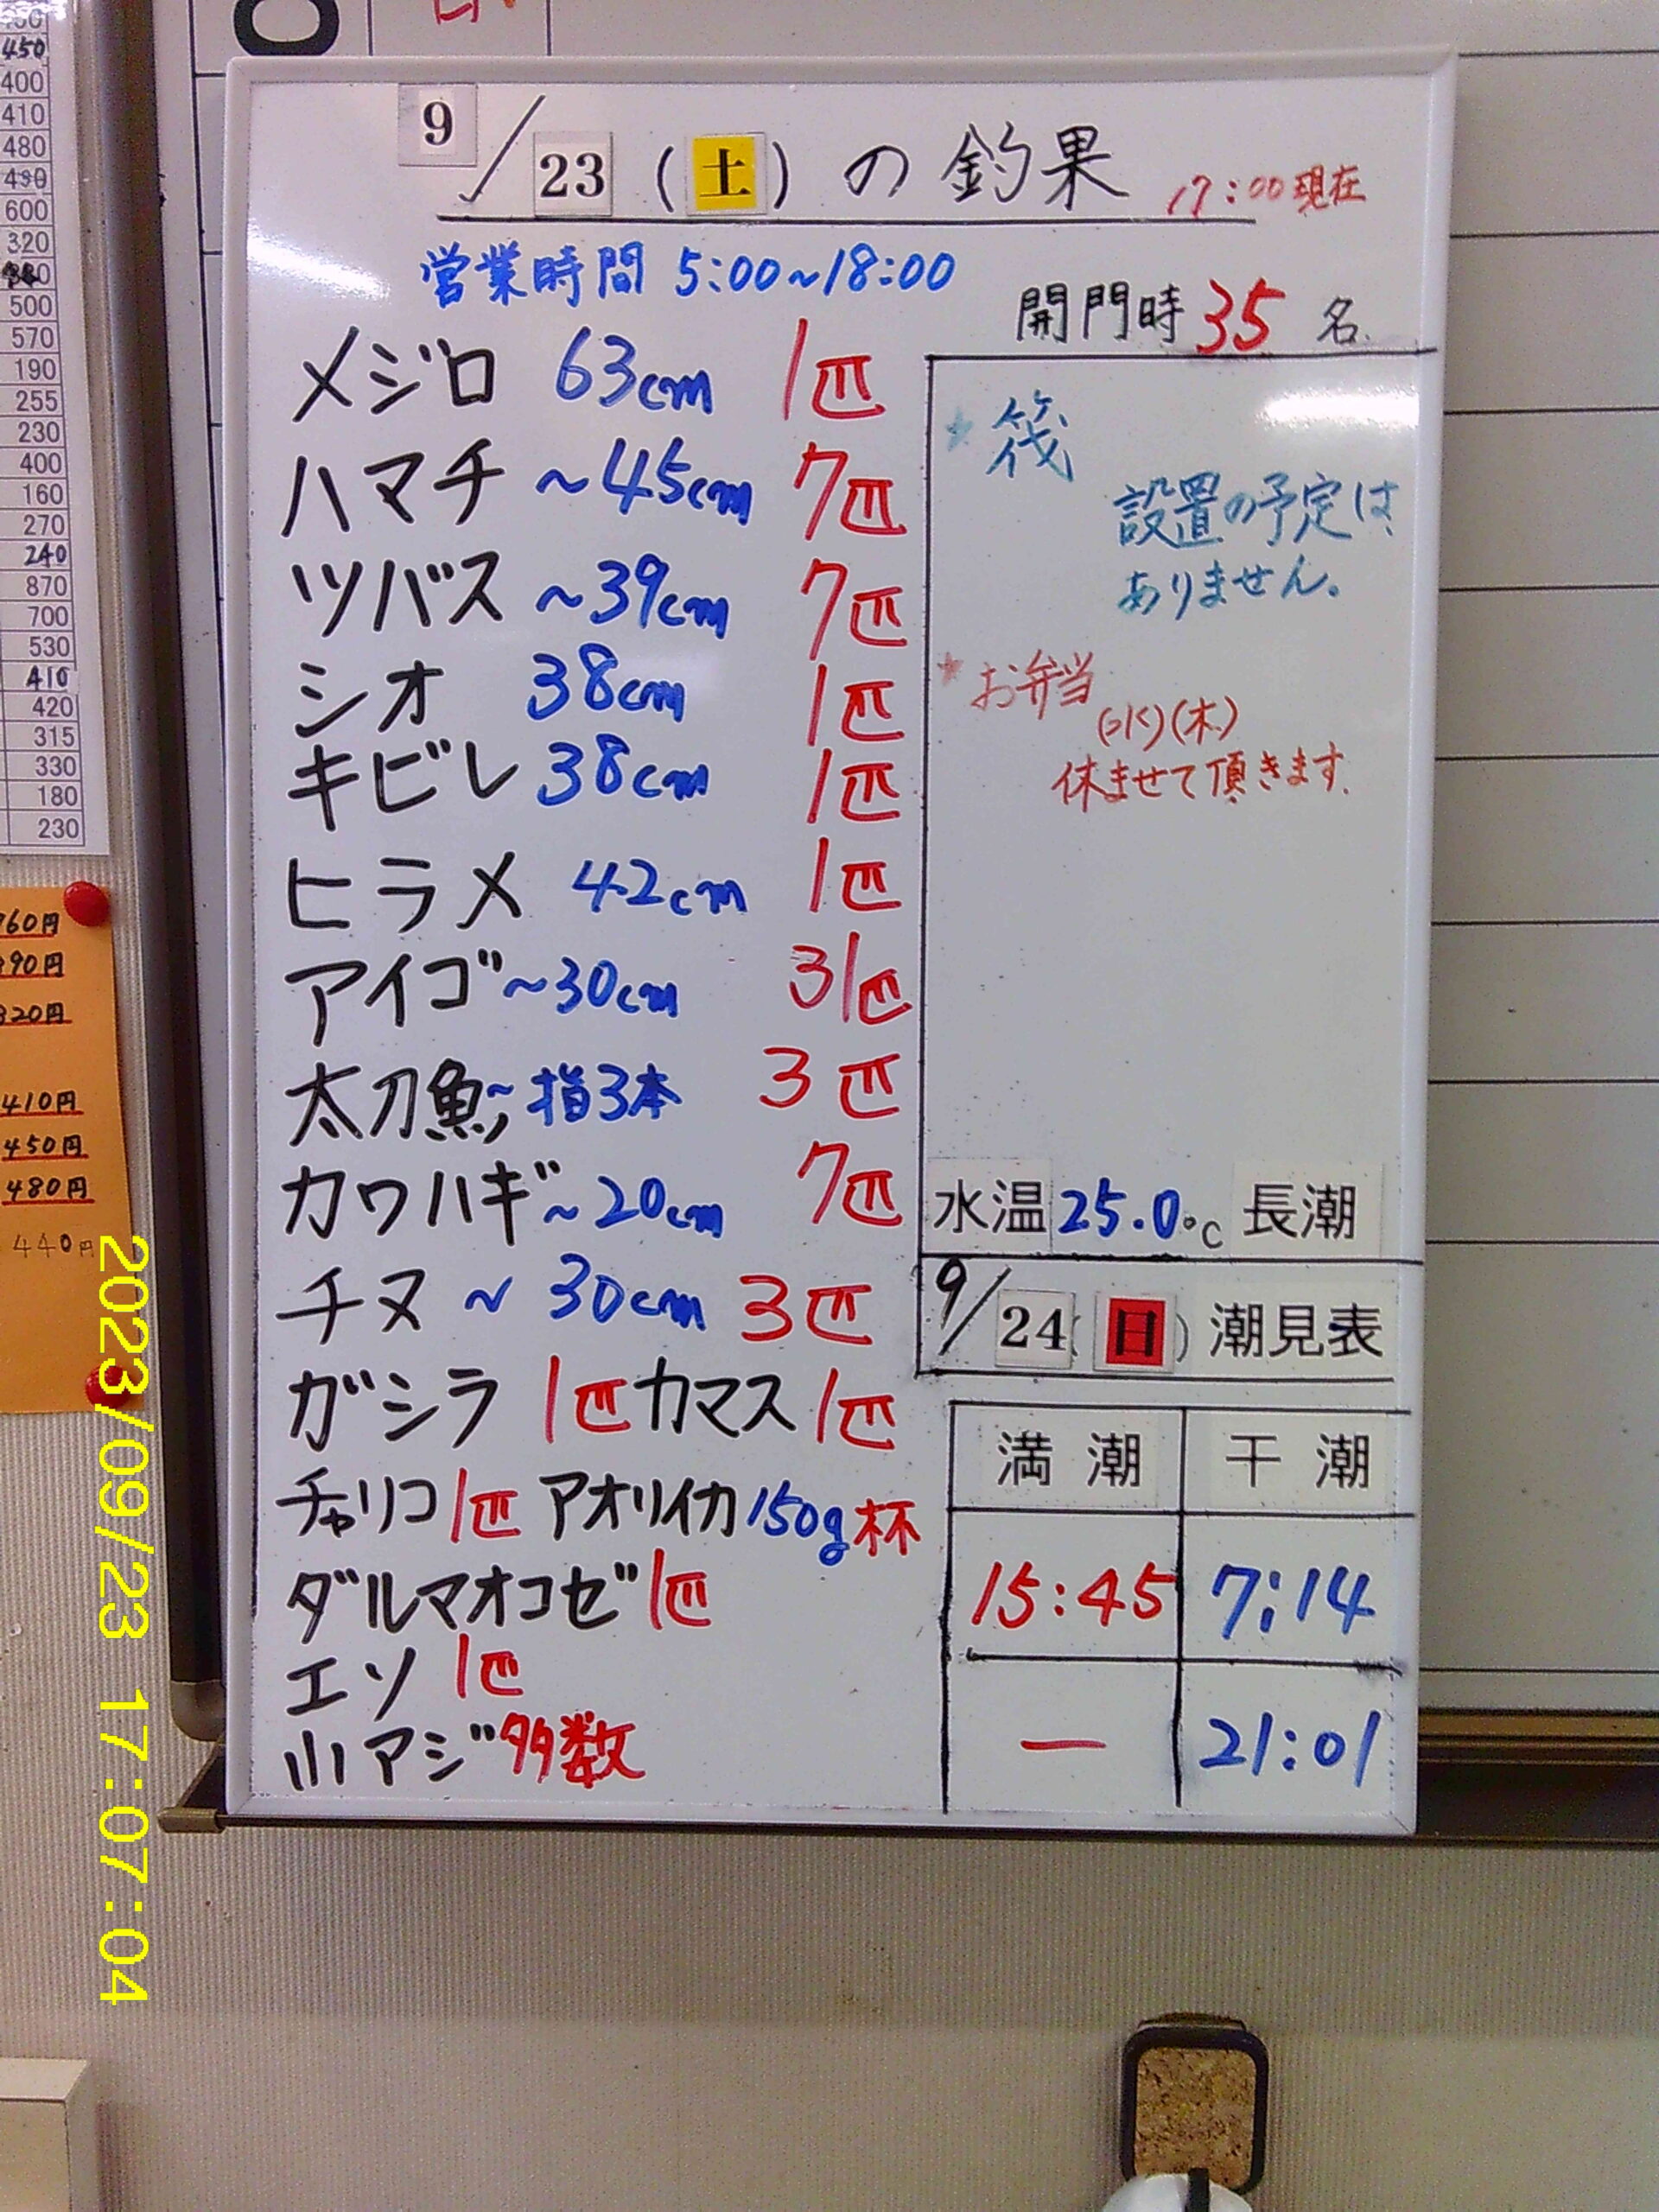 9/23(土)の釣果 17:00現在
営業時間 5:00~18:00
開門時35名.
メジロ 63cm 1匹
ハマチ ~45cm 7匹
ツバス ~39cm 7匹
シオ 38cm 1匹
キビレ 38cm 1匹
ヒラメ 42cm 1匹
アイゴ~30cm 31匹
太刀魚~指3本 3匹
カワハギ~20cm 7匹
チヌ ~ 30cm 3匹
ガシラ 1匹 カマス 1匹
チャリコ 1匹 アオリイカ 150g 杯
ダルマオコゼ 1匹
エソ 1匹
小アジ 多数
*筏
設置の予定は
ありません。
*お弁当
(水)(木)
休ませて頂きます.
水温 25.0℃ 長潮
9/24(日) 潮見表
満潮 干潮
15:45 7:14
― 21:01
450
400
410
480
490
600
320
500
570
190
255
230
400
160
270
240
870
700
530
410
420
315
330
180
230
410円
450円
480円
440円
2023/09/23 17:07:04